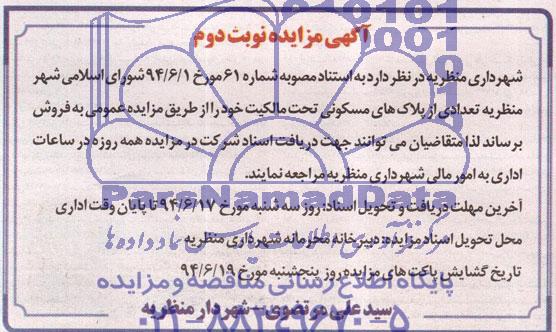 آگهی مزایده نوبت دوم
شهرداری منظریه در نظر دارد به استناد مصوبه شماره ۶۱ مورخ ۹۴/۶/۱ شورای اسلامی شهر
منظریه تعدادی از پلاک های مسکونی تحت مالکیت خود را از طریق مزایده عمومی به فروش
برساند لذا متقاضیان می توانند جهت دریافت اسناد شرکت در مزایده همه روزه در ساعات
اداری به امور مالی شهرداری منظریه مراجعه نمایند.
آخرین مهلت دریافت و تحویل اسناد: روز سه شنبه مورخ ۹۴/۶/۱۷ تا پایان وقت اداری
محل تحویل اسناد مزایده: دبیرخانه محرمانه شهرداری منظریه
تاریخ گشایش پاکت های مزایده روز پنجشنبه مورخ ۹۴/۶/۱۹
سید علی مرتضوی - شهردار منظریه
ParsNamadData
پایگاه اطلاع رسانی مناقصه و مزایده
۰۲۱-۸۸۳۴۹۶۷۰-۵